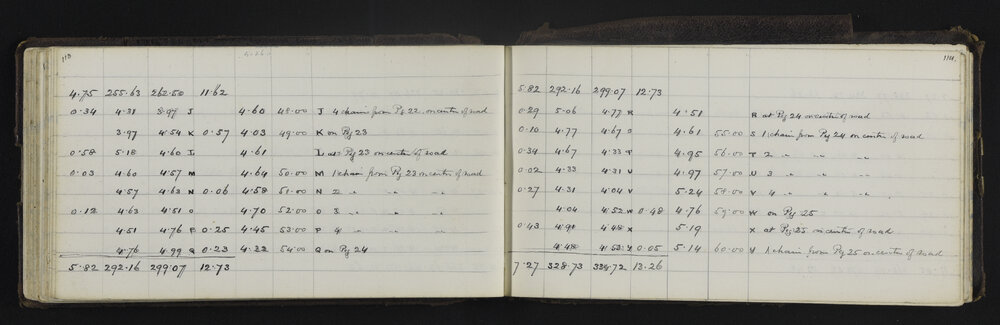 113
4.75 255.63 262.50 11.62
0.34 4.31 3.97 J 4.60 48.00 J 4 chain from Pg 22 on centre of road
3.97 4.54 K 0.57 4.03 49.00 K on Pg 23
0.58 5.18 4.60 L 4.61 L at Pg 23 on centre of road
0.03 4.60 4.57 M 4.64 50.00 M 1 chain from Pg 23 on centre of road
4.57 4.63 N 0.06 4.58 51.00 N 2 " " "
0.12 4.63 4.51 O 4.70 52.00 O 3 " " "
4.51 4.76 P 0.25 4.45 53.00 P 4 " " "
4.76 4.99 Q 0.23 4.22 54.00 Q on Pg 24
5.82 292.16 299.07 12.73
114
5.82 292.16 299.07 12.73
0.29 5.06 4.77 R 4.51 R at Pg 24 on centre of road
0.10 4.77 4.67 S 4.61 55.00 S 1 chain from Pg 24 on centre of road
0.34 4.67 4.33 T 4.95 56.00 T 2 " " "
0.02 4.33 4.31 U 4.97 57.00 U 3 " " "
0.27 4.31 4.04 V 5.24 58.00 V 4 " " "
4.04 4.52 W 0.48 4.76 59.00 W on Pg 25
0.43 4.91 4.48 X 5.19 X at Pg 25 on centre of road
4.48 4.53 Y 0.05 5.14 60.00 Y 1 chain from Pg 25 on centre of road
7.27 328.73 334.72 13.26